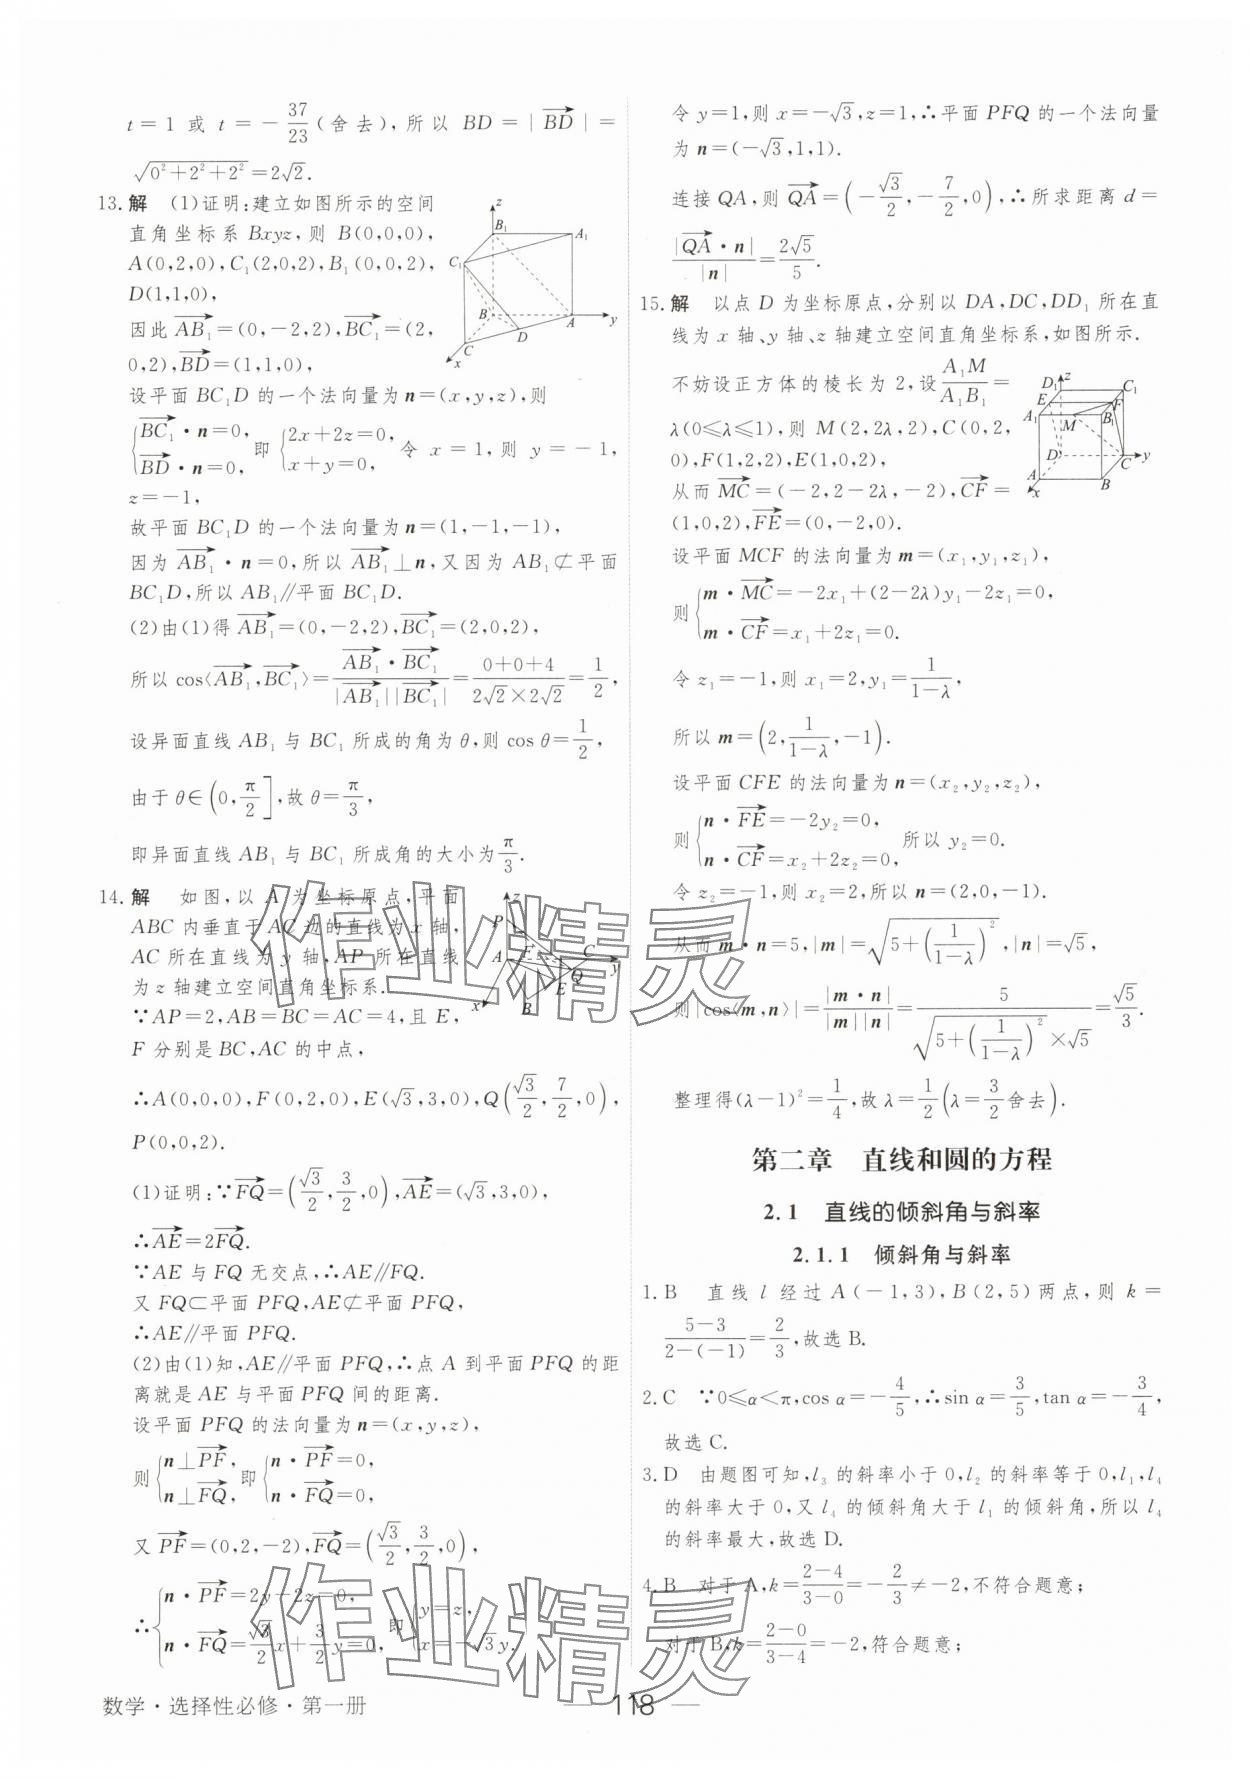 t=1 或 t=-37/23(舍去),所以 BD=|BD→|=
√(0²+2²+2²)=2√2.
13.解 (1)证明:建立如图所示的空间
直角坐标系 Bxyz,则 B(0,0,0),
A(0,2,0),C₁(2,0,2),B₁(0,0,2),
D(1,1,0),
因此 AB₁→=(0,-2,2),BC₁→=(2,
0,2),BD→=(1,1,0),
z
B₁
A₁
C₁
B
A
y
D
C
x
设平面 BC₁D 的一个法向量为 n=(x,y,z),则
{BC₁→·n=0, BD→·n=0, 即 {2x+2z=0, x+y=0, 令 x=1,则 y=-1,
z=-1,
故平面 BC₁D 的一个法向量为 n=(1,-1,-1),
因为 AB₁→·n=0,所以 AB₁→⊥n,又因为 AB₁⊄平面
BC₁D,所以 AB₁∥平面 BC₁D.
(2)由(1)得 AB₁→=(0,-2,2),BC₁→=(2,0,2),
所以 cos⟨AB₁→,BC₁→⟩=(AB₁→·BC₁→)/(|AB₁→||BC₁→|)=(0+0+4)/(2√2×2√2)=1/2,
设异面直线 AB₁ 与 BC₁ 所成的角为 θ,则 cos θ=1/2,
由于 θ∈(0,π/2],故 θ=π/3,
即异面直线 AB₁ 与 BC₁ 所成角的大小为 π/3.
14.解 如图,以 A 为坐标原点,平面
ABC 内垂直于 AC 边的直线为 x 轴,
AC 所在直线为 y 轴,AP 所在直线
为 z 轴建立空间直角坐标系.
z
P
A
F
C
y
Q
E
B
x
∵AP=2,AB=BC=AC=4,且 E,
F 分别是 BC,AC 的中点,
∴A(0,0,0),F(0,2,0),E(√3,3,0),Q(√3/2,7/2,0),
P(0,0,2).
(1)证明:∵FQ→=(√3/2,3/2,0),AE→=(√3,3,0),
∴AE→=2FQ→.
∵AE 与 FQ 无交点,∴AE∥FQ.
又 FQ⊂平面 PFQ,AE⊄平面 PFQ,
∴AE∥平面 PFQ.
(2)由(1)知,AE∥平面 PFQ,∴点 A 到平面 PFQ 的距
离就是 AE 与平面 PFQ 间的距离.
设平面 PFQ 的法向量为 n=(x,y,z),
则 {n⊥PF→, n⊥FQ→, 即 {n·PF→=0, n·FQ→=0,
又 PF→=(0,2,-2),FQ→=(√3/2,3/2,0),
∴{n·PF→=2y-2z=0, n·FQ→=√3/2x+3/2y=0, 即 {y=z, x=-√3y.
令 y=1,则 x=-√3,z=1,∴平面 PFQ 的一个法向量
为 n=(-√3,1,1).
连接 QA,则 QA→=(-√3/2,-7/2,0),∴所求距离 d=
|QA→·n|/|n|=2√5/5.
15.解 以点 D 为坐标原点,分别以 DA,DC,DD₁ 所在直
线为 x 轴、y 轴、z 轴建立空间直角坐标系,如图所示.
不妨设正方体的棱长为 2,设 A₁M/A₁B₁=
λ(0≤λ≤1),则 M(2,2λ,2),C(0,2,
0),F(1,2,2),E(1,0,2),
从而 MC→=(-2,2-2λ,-2),CF→=
(1,0,2),FE→=(0,-2,0).
z
D₁
C₁
E
F
A₁
M
B₁
D
C
y
A
B
x
设平面 MCF 的法向量为 m=(x₁,y₁,z₁),
则 {m·MC→=-2x₁+(2-2λ)y₁-2z₁=0, m·CF→=x₁+2z₁=0.
令 z₁=-1,则 x₁=2,y₁=1/(1-λ),
所以 m=(2,1/(1-λ),-1).
设平面 CFE 的法向量为 n=(x₂,y₂,z₂),
则 {n·FE→=-2y₂=0, n·CF→=x₂+2z₂=0, 所以 y₂=0.
令 z₂=-1,则 x₂=2,所以 n=(2,0,-1).
从而 m·n=5,|m|=√(5+(1/(1-λ))²),|n|=√5,
则|cos⟨m,n⟩|=|m·n|/(|m||n|)=5/(√(5+(1/(1-λ))²)×√5)=√5/3.
整理得(λ-1)²=1/4,故 λ=1/2(λ=3/2舍去).
第二章 直线和圆的方程
2.1 直线的倾斜角与斜率
2.1.1 倾斜角与斜率
1.B 直线 l 经过 A(-1,3),B(2,5)两点,则 k=
(5-3)/(2-(-1))=2/3,故选 B.
2.C ∵0≤α<π,cos α=-4/5,∴sin α=3/5,tan α=-3/4,
故选 C.
3.D 由题图可知,l₃ 的斜率小于 0,l₂ 的斜率等于 0,l₁,l₄
的斜率大于 0,又 l₄ 的倾斜角大于 l₁ 的倾斜角,所以 l₄
的斜率最大,故选 D.
4.B 对于 A,k=(2-4)/(3-0)=-2/3≠-2,不符合题意;
对于 B,k=(2-0)/(3-4)=-2,符合题意;
作业精灵
作业精灵
数学·选择性必修·第一册
118